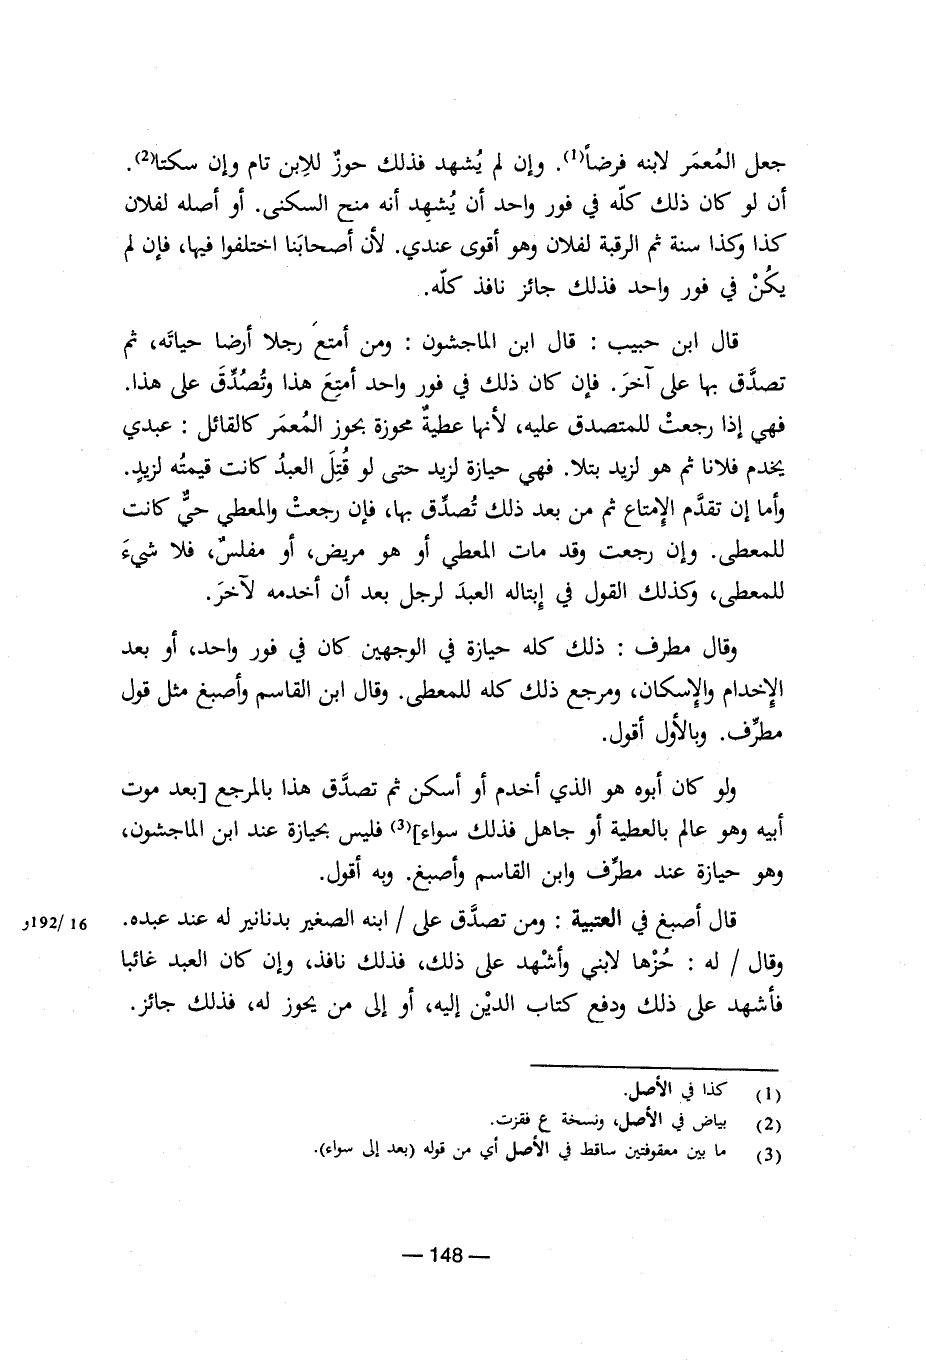 جعل المُعمَر لابنه فرضاً(1). وإن لم يُشهد فذلك حوزٌ للاِبن تام وإن سكتا(2).
أن لو كان ذلك كلّه في فور واحد أن يُشهِد أنه منح السكنى. أو أصله لفلان
كذا وكذا سنة ثم الرقبة لفلان وهو أقوى عندي. لأن أصحابَنا اختلفوا فيها، فإن لم
يكُنْ في فور واحد فذلك جائز نافذ كلّه.
قال ابن حبيب : قال ابن الماجشون : ومن أمتعَ رجلا أرضا حياتَه، ثم
تصدَّق بها على آخرَ. فإن كان ذلك في فور واحد أمتِعَ هذا وتُصُدِّقَ على هذا.
فهي إذا رجعتْ للمتصدق عليه، لأنها عطيةٌ محوزة بحوز المُعمَر كالقائل : عبدي
يخدم فلانا ثم هو لزيد بتلا. فهي حيازة لزيد حتى لو قُتِلَ العبدُ كانت قيمتُه لزيدٍ.
وأما إن تقدَّم الإمتاع ثم من بعد ذلك تُصدِّق بها، فإن رجعتْ والمعطي حيٌّ كانت
للمعطى. وإن رجعت وقد مات المعطي أو هو مريض، أو مفلسٌ، فلا شيءَ
للمعطى، وكذلك القول في إبتاله العبدَ لرجل بعد أن أخدمه لآخرَ.
وقال مطرف : ذلك كله حيازة في الوجهين كان في فور واحد، أو بعد
الإخدام والإسكان، ومرجع ذلك كله للمعطى. وقال ابن القاسم وأصبغ مثل قول
مطرِّف. وبالأول أقول.
ولو كان أبوه هو الذي أخدم أو أسكن ثم تصدَّق هذا بالمرجع [بعد موت
أبيه وهو عالم بالعطية أو جاهل فذلك سواء](3) فليس بحيازة عند ابن الماجشون،
وهو حيازة عند مطرِّف وابن القاسم وأصبغ. وبه أقول.
قال أصبغ في العتبية : ومن تصدَّق على / ابنه الصغير بدنانير له عند عبده. 16 /192و
وقال / له : حُزْها لابني وأشْهد على ذلك، فذلك نافذ، وإن كان العبد غائبا
فأشهد على ذلك ودفع كتاب الديْن إليه، أو إلى من يحوز له، فذلك جائز.
(1) كذا في الأصل.
(2) بياض في الأصل، ونسخة ع فقزت.
(3) ما بين معقوفتين ساقط في الأصل أي من قوله (بعد إلى سواء).
— 148 —